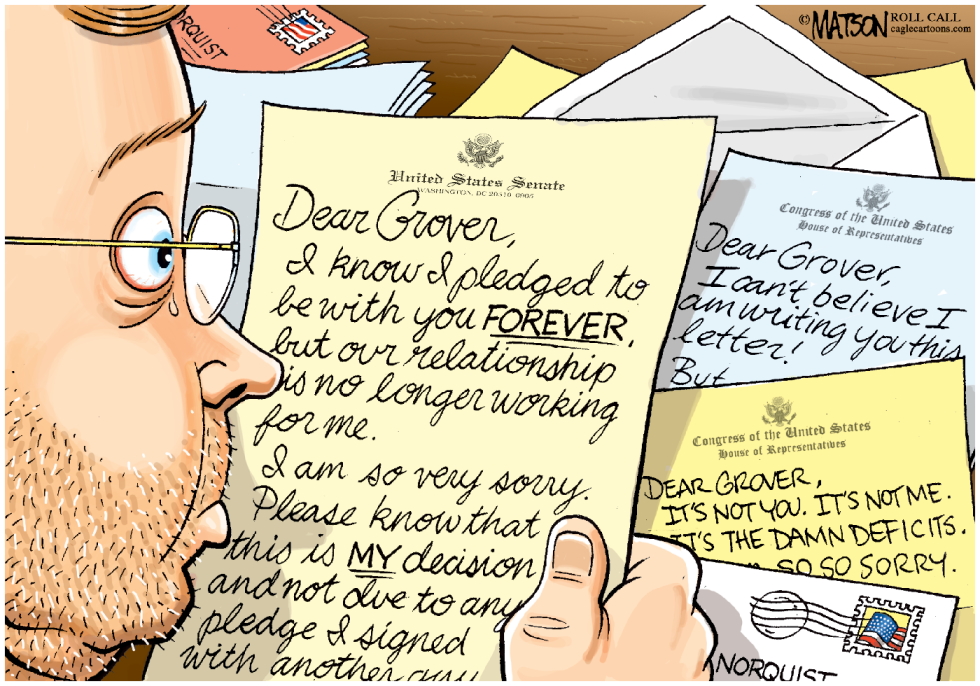 © MATSON ROLL CALL
caglecartoons.com
RQUIST
United States Senate
WASHINGTON, DC 20510-0905
Dear Grover,
I know I pledged to
be with you FOREVER,
but our relationship
is no longer working
for me.
I am so very sorry.
Please know that
this is MY decision
and not due to any
pledge I signed
with another guy
Congress of the United States
House of Representatives
Dear Grover,
I can't believe I
am writing you this
letter!
But
Congress of the United States
House of Representatives
DEAR GROVER,
IT'S NOT YOU. IT'S NOT ME.
IT'S THE DAMN DEFICITS.
SO SO SORRY.
NORQUIST